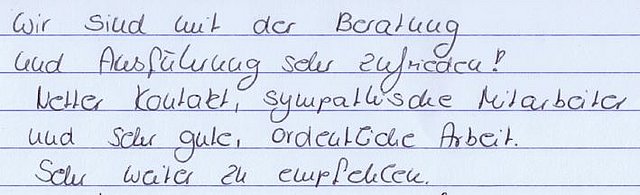 Wir sind mit der Beratung
und Ausführung sehr zufrieden!
Netter Kontakt, sympathische Mitarbeiter
und sehr gute, ordentliche Arbeit.
Sehr weiter zu empfehlen.